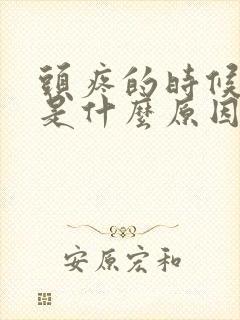 頭疼的時候
是什麼原因
安原宏和